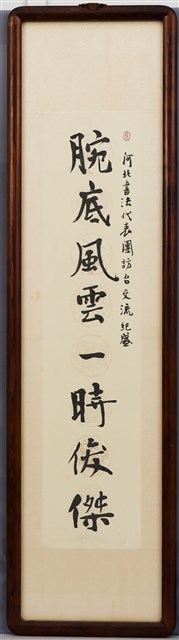 河北書法代表團訪台交流紀盛
腕底風雲一時俊傑